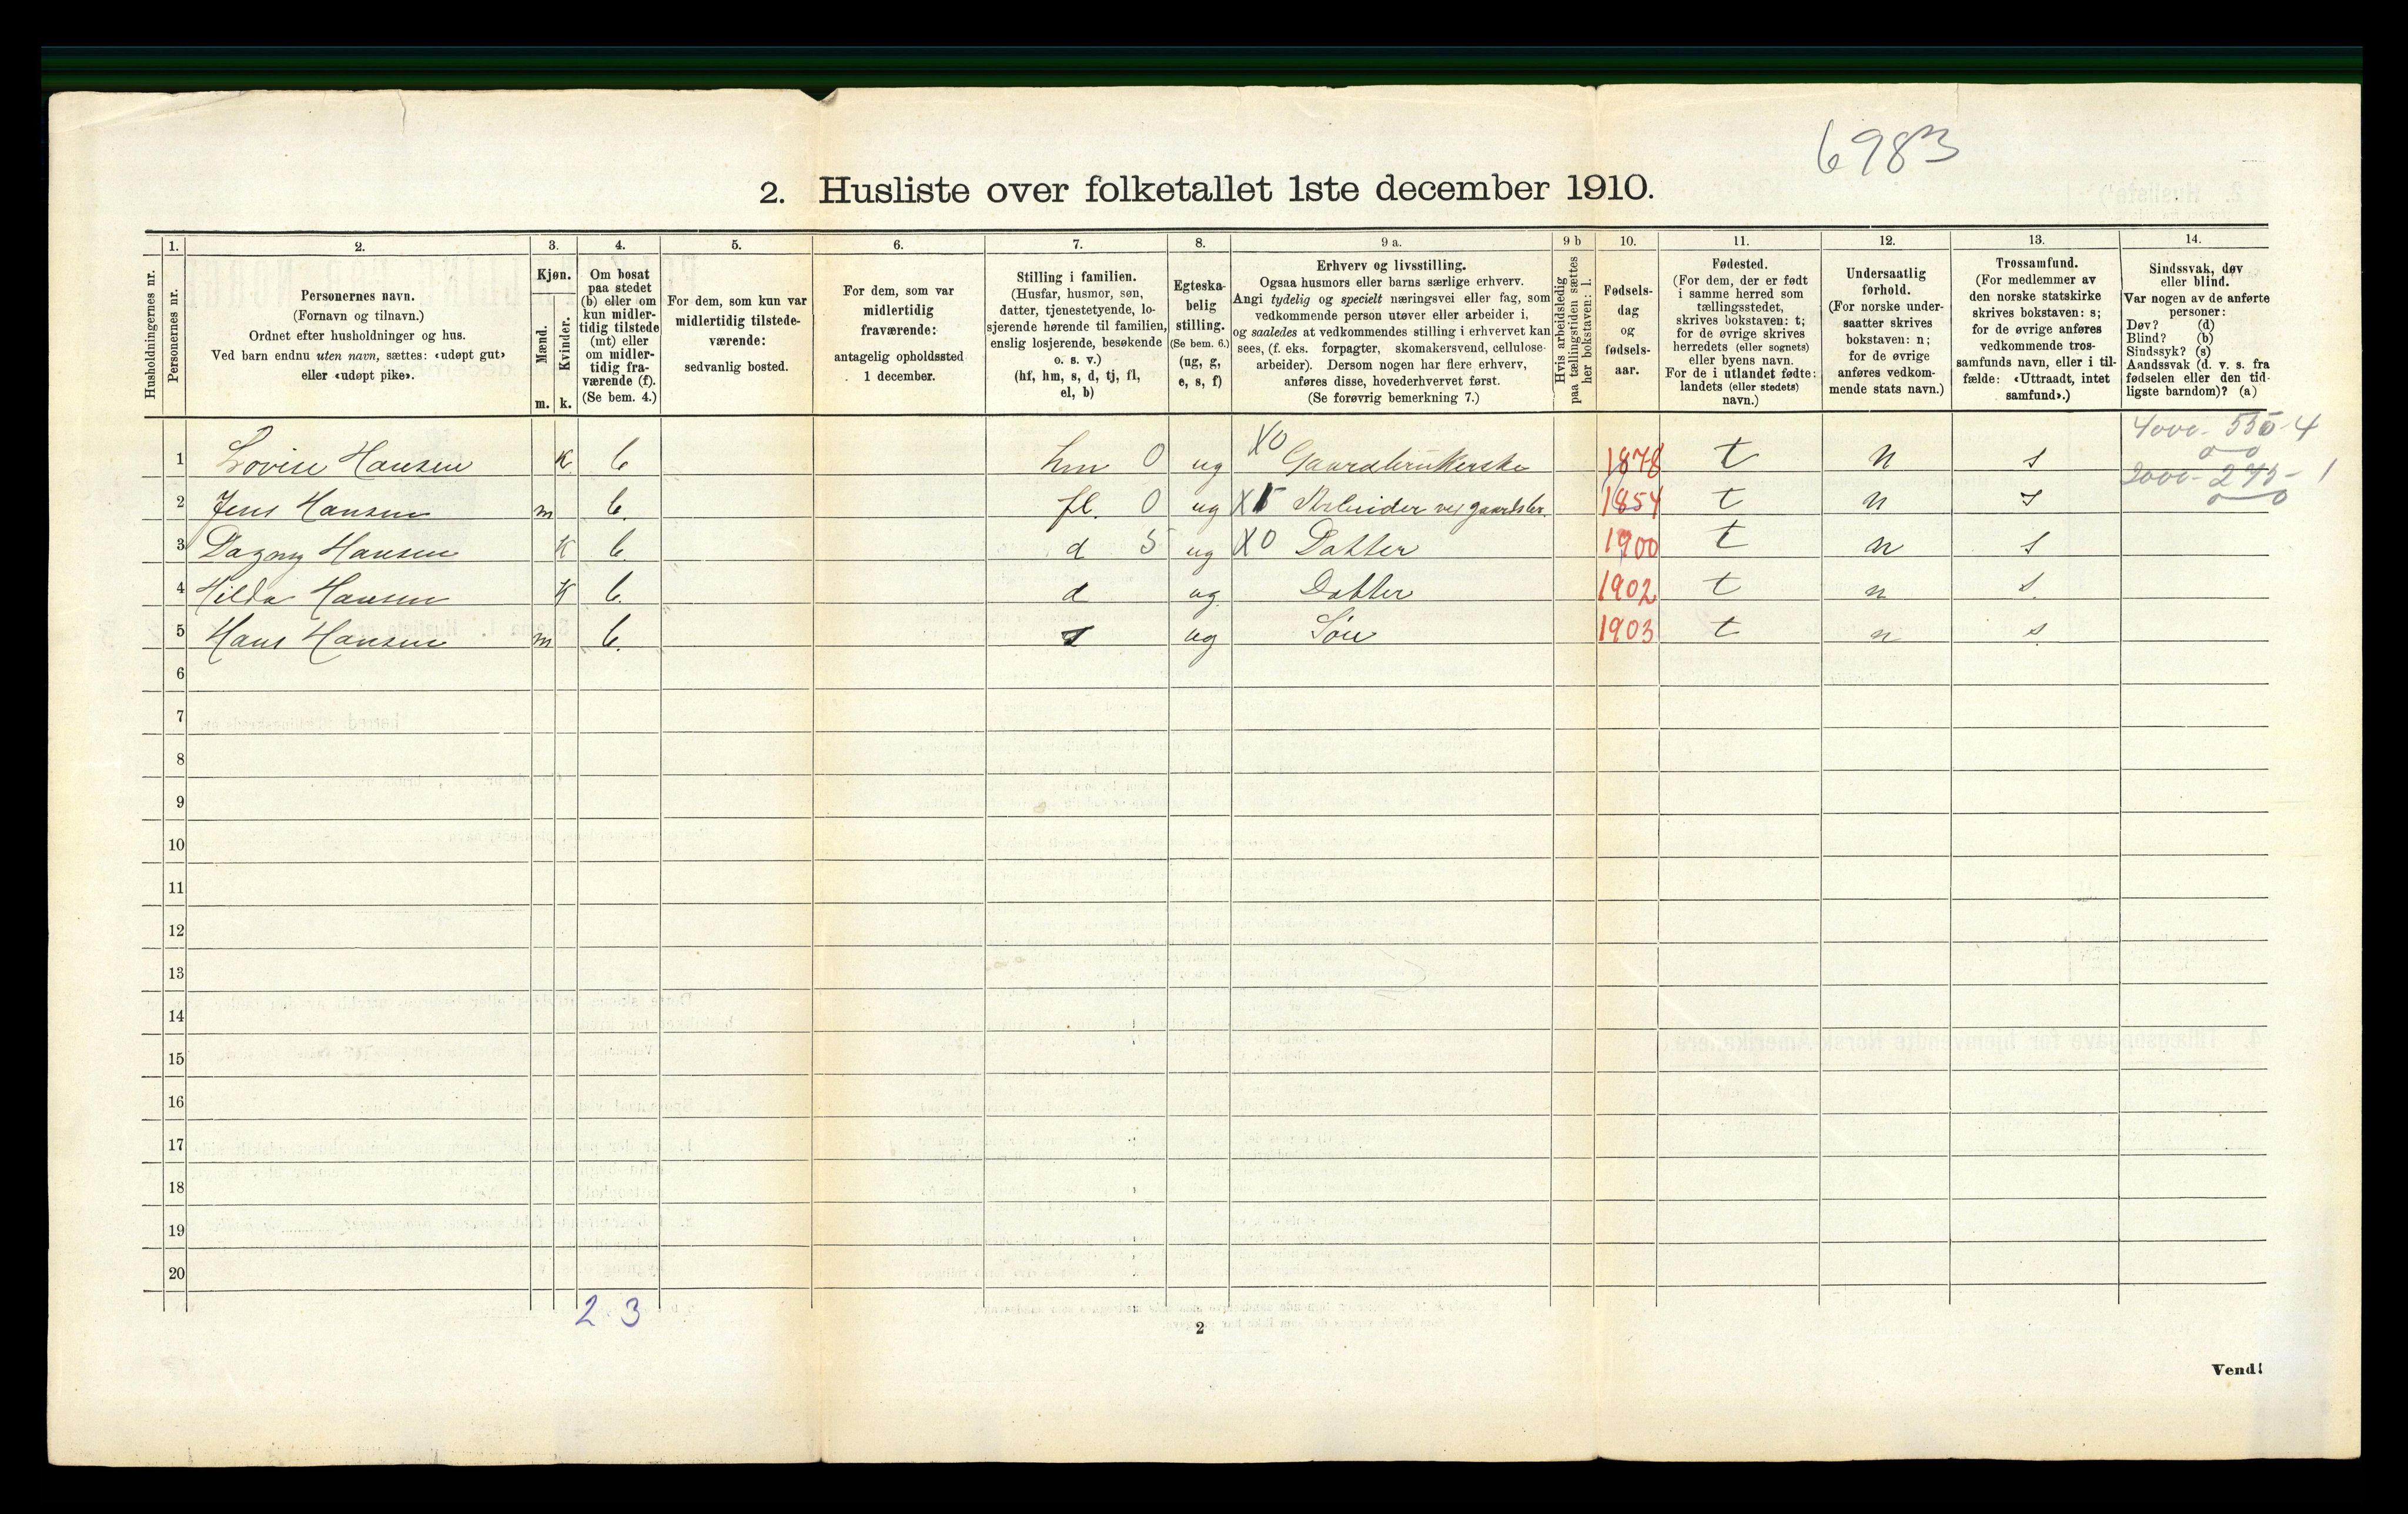 6983
2. Husliste over folketallet 1ste december 1910.
Husholdningernes nr.
1.
Personernes nr.
2.
Personernes navn.
(Fornavn og tilnavn.)
Ordnet efter husholdninger og hus.
Ved barn endnu uten navn, sættes: «udøpt gut»
eller «udøpt pike».
3.
Kjøn.
Mænd.
Kvinder.
m. k.
4.
Om bosat
paa stedet
(b) eller om
kun midler-
tidig tilstede
(mt) eller
om midler-
tidig fra-
værende (f).
(Se bem. 4.)
5.
For dem, som kun var
midlertidig tilstede-
værende:
sedvanlig bosted.
6.
For dem, som var
midlertidig
fraværende:
antagelig opholdssted
1 december.
7.
Stilling i familien.
(Husfar, husmor, søn,
datter, tjenestetyende, lo-
sjerende hørende til familien,
enslig losjerende, besøkende
o. s. v.)
(hf, hm, s, d, tj, fl,
el, b)
8.
Egteska-
belig
stilling.
(Se bem. 6.)
(ug, g,
e, s, f)
9 a.
Erhverv og livsstilling.
Ogsaa husmors eller barns særlige erhverv.
Angi tydelig og specielt næringsvei eller fag, som
vedkommende person utøver eller arbeider i,
og saaledes at vedkommendes stilling i erhvervet kan
sees, (f. eks. forpagter, skomakersvend, cellulose-
arbeider). Dersom nogen har flere erhverv,
anføres disse, hovederhvervet først.
(Se forøvrig bemerkning 7.)
9 b
Hvis arbeidsledig
paa tællingstiden sættes
her bokstaven: l.
10.
Fødsels-
dag
og
fødsels-
aar.
11.
Fødested.
(For dem, der er født
i samme herred som
tællingsstedet,
skrives bokstaven: t;
for de øvrige skrives
herredets (eller sognets)
eller byens navn.
For de i utlandet fødte:
landets (eller stedets)
navn.)
12.
Undersaatlig
forhold.
(For norske under-
saatter skrives
bokstaven: n;
for de øvrige
anføres vedkom-
mende stats navn.)
13.
Trossamfund.
(For medlemmer av
den norske statskirke
skrives bokstaven: s;
for de øvrige anføres
vedkommende tros-
samfunds navn, eller i til-
fælde: «Uttraadt, intet
samfund».)
14.
Sindssvak, døv
eller blind.
Var nogen av de anførte
personer:
Døv? (d)
Blind? (b)
Sindssyk? (s)
Aandssvak (d. v. s. fra
fødselen eller den tid-
ligste barndom)? (a)
4000 - 550 - 4
1 Lovise Hansen K b hm 0 ug X0 Gaardbrukerske 1878 t n s
2000 - 275 - 1
2 Jens Hansen m b. fl. 0 ug X Arbeider ved gaardsbr. 1854 t n s
3 Dagny Hansen K b. d 5 ug X0 Datter 1900 t n s
4 Hilda Hansen K b. d ug. Datter 1902 t n s.
5 Hans Hansen m b. s ug Søn 1903 t n s.
6
7
8
9
10
11
12
13
14
15
16
17
18
19
20
2 . 3
2
Vend!